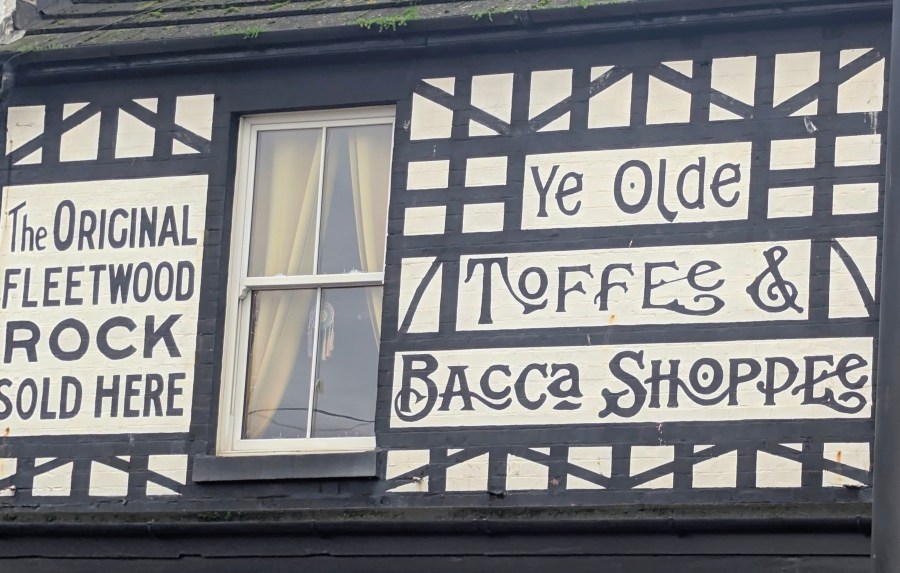 The ORIGINAL
FLEETWOOD
ROCK
SOLD HERE
Ye Olde
TOFFEE &
BACCA SHOPPEE